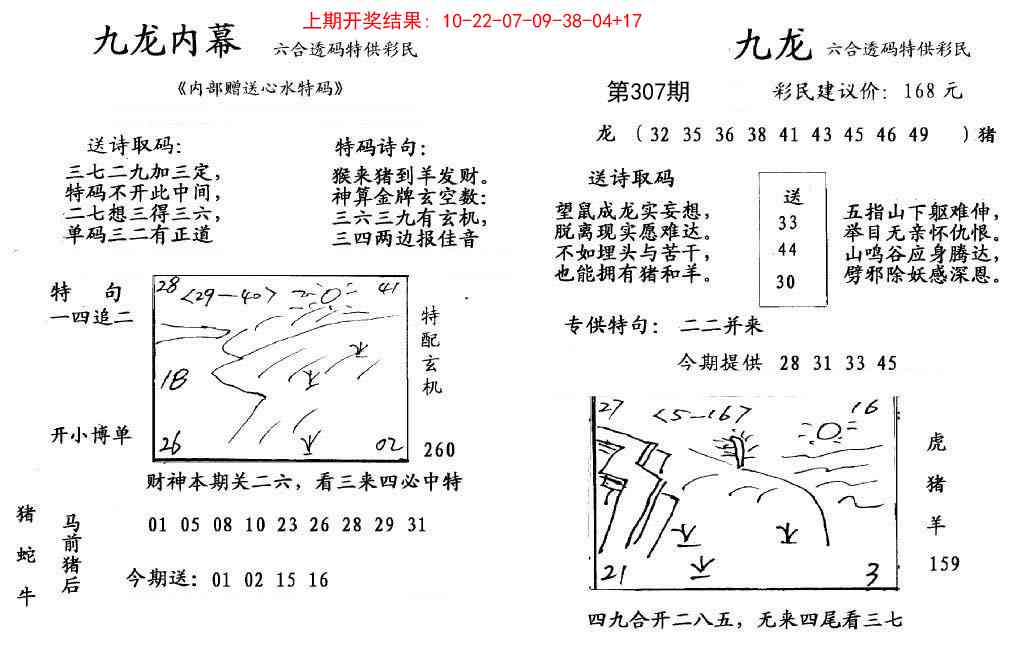 上期开奖结果: 10-22-07-09-38-04+17
九龙内幕 六合透码特供彩民
《内部赠送心水特码》
送诗取码:
三七二九加三定，
特码不开此中间，
二七想三得三六，
单码三二有正道
特码诗句:
猴来猪到羊发财。
神算金牌玄空数:
三六三九有玄机，
三四两边报佳音
特 句
一四追二
开小博单
28 <29-40> 41
18
26 02
特配玄机
260
财神本期关二六，看三来四必中特
猪蛇牛
马前猪后
01 05 08 10 23 26 28 29 31
今期送: 01 02 15 16
九龙 六合透码特供彩民
第307期 彩民建议价: 168 元
龙 (32 35 36 38 41 43 45 46 49 )猪
送诗取码
望鼠成龙实妄想，
脱离现实愿难达。
不如埋头与苦干，
也能拥有猪和羊。
送
33
44
30
五指山下躯难伸，
举目无亲怀仇恨。
山鸣谷应身腾达，
劈邪除妖感深恩。
专供特句: 二二并来
今期提供 28 31 33 45
27 <5-16> 16
21 3
虎
猪
羊
159
四九合开二八五，无来四尾看三七